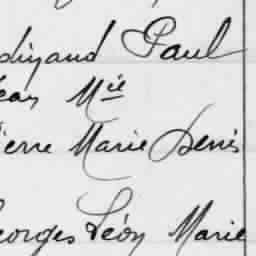 dinand Paul
ean Mie
ierre Marie Denis
eorges Léon Marie